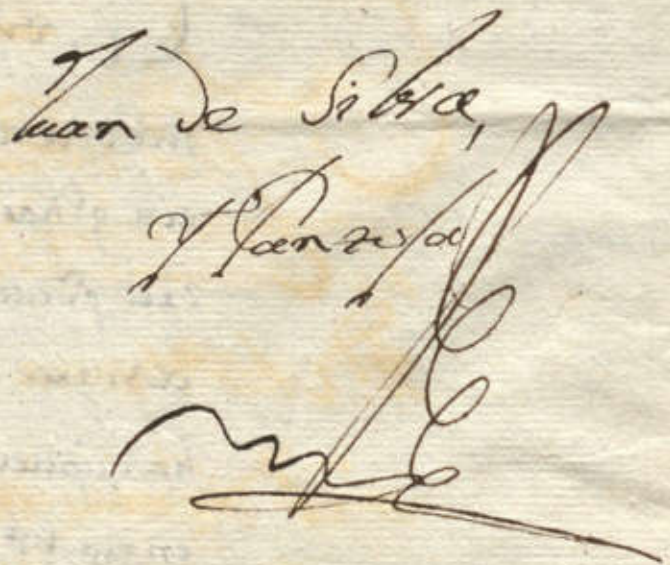 Juan de Silva,
y Pantoja